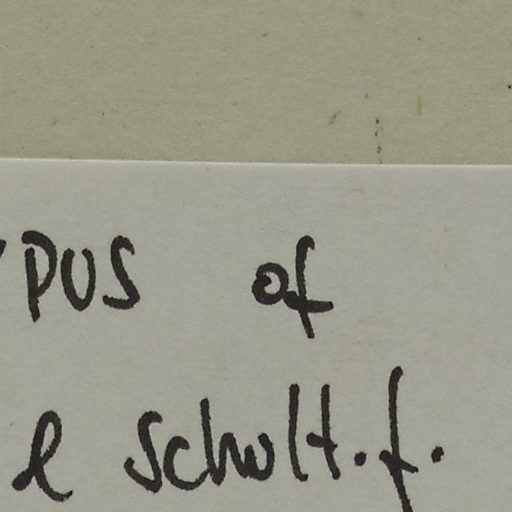 YPUS of
& Schult.f.